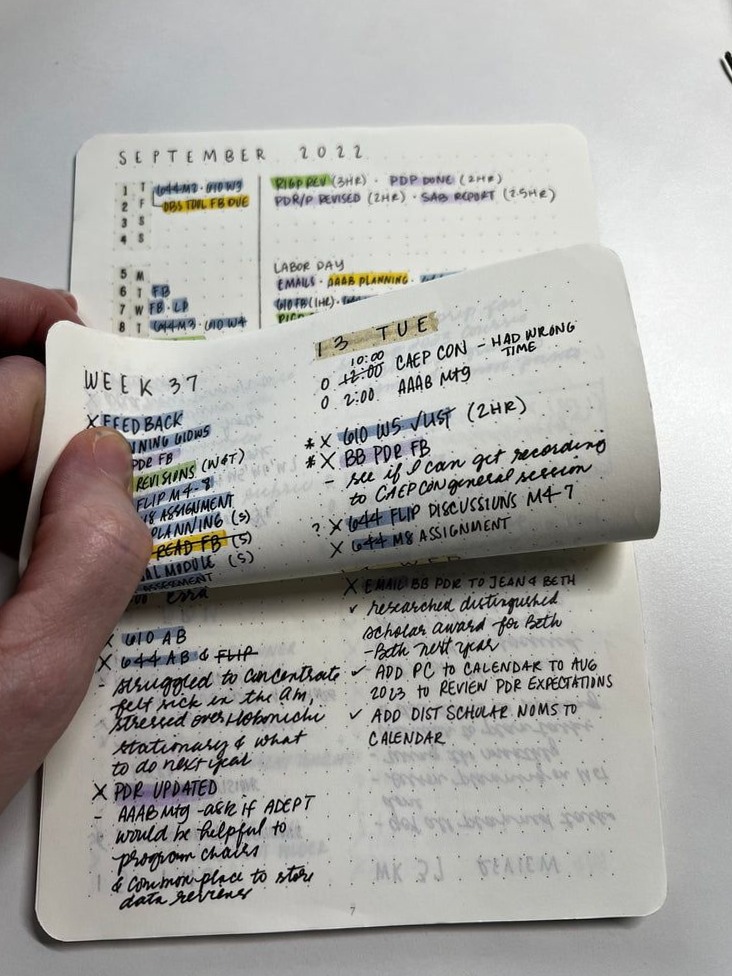 SEPTEMBER 2022
1 T 644 M2 · 610 W3
2 F OBS TOOL FB DUE
3 S
4 S
5 M
6 T FB
7 W FB · LP
8 T 644 M3 · 610 W4
(3HR) · PDP DONE (2HR)
PDR/P REVISED (2HR) · SAB REPORT (2.5HR)
LABOR DAY
EMAILS · AAAB PLANNING ·
610 FB (1HR) ·
WEEK 37
X FEEDBACK
NNING 610W5
PDR FB
REVISIONS (W&T)
FLIP M4-8
18 ASSIGNMENT
PLANNING (S)
READ FB (S)
AL MODULE (S)
ASSESSMENT
13 TUE
10:00
O 12:00 CAEP CON - HAD WRONG
TIME
O 2:00 AAAB Mtg
* X 610 W5 √LIST (2HR)
* X BB PDR FB
- see if I can get recording
to CAEP CON general session
? X 644 FLIP DISCUSSIONS M4-7
X 644 M8 ASSIGNMENT
X 610 AB
X 644 AB & FLIP
- struggled to concentrate
felt sick in the am,
stressed over Hobonichi
stationary & what
to do next year
X PDR UPDATED
- AAAB Mtg - ask if ADEPT
would be helpful to
program chairs
& common place to store
data reviews
WED
X EMAIL BB PDR TO JEAN & BETH
✓ researched distinguished
scholar award for Beth
- Beth next year
✓ ADD PC TO CALENDAR TO AUG
2023 TO REVIEW PDR EXPECTATIONS
✓ ADD DIST SCHOLAR NOMS TO
CALENDAR
WK 37 REVIEW
7